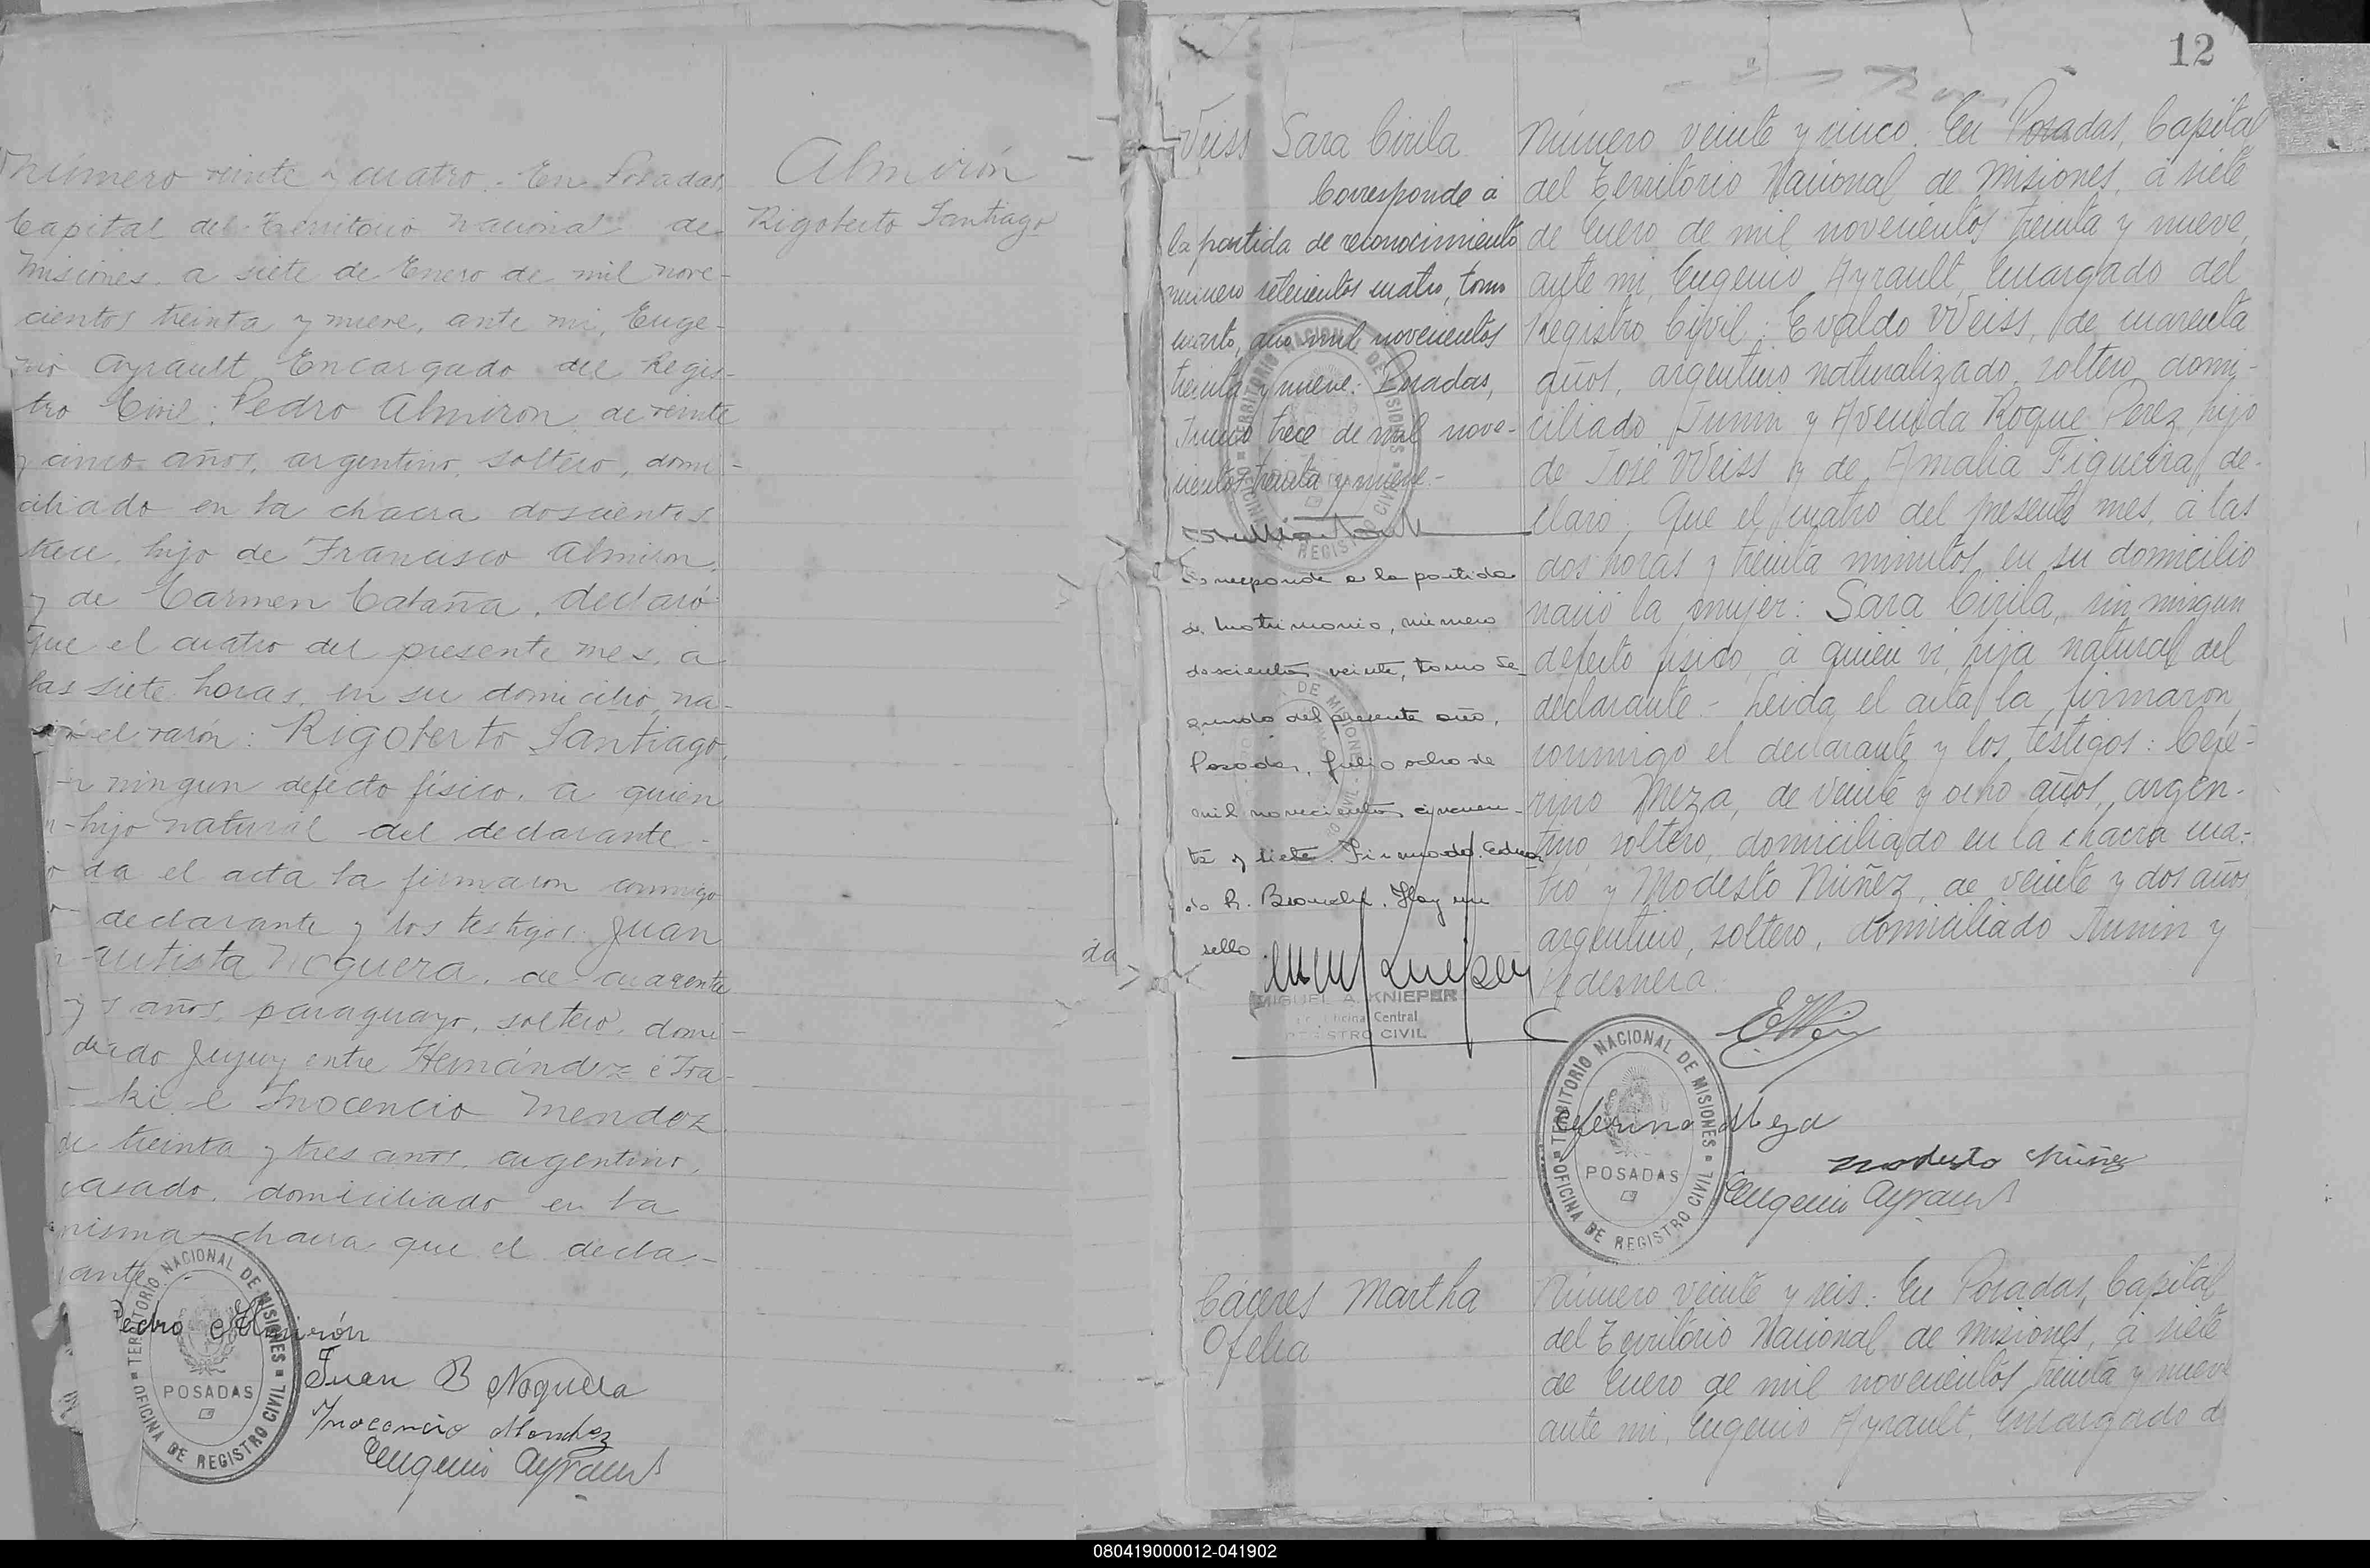 Número veinte y cuatro. En Posadas,
Capital del Territorio Nacional de
Misiones, a siete de Enero de mil nove-
cientos treinta y nueve, ante mi, Euge-
nio Ayrault Encargado del Regis-
tro Civil: Pedro Almiron, de veinte
y cinco años, argentino, soltero, domi-
ciliado en la chacra doscientos
trece, hijo de Francisco Almiron,
y de Carmen Cataña, declaró:
que el cuatro del presente mes, a
las siete horas, en su domicilio, na-
el varón: Rigoberto Santiago,
ningun defecto físico, a quien
hijo natural del declarante.-
da el acta la firmaron conmigo
declarante y los testigos: Juan
autista Noguera, de cuarenta
y s años, paraguayo, soltero, domi-
Jujuy entre Hernández é Tra-
ki e Inocencio Mendez
de treinta y tres años, argentino,
casado, domiciliado en la
misma chacra que el decla-
rante.
Pedro Almirón
Juan B Noguera
Inocencio Mendez
Eugenio Ayrault
TERRITORIO NACIONAL DE MISIONES
POSADAS
OFICINA DE REGISTRO CIVIL
Almirón
Rigoberto Santiago
da
12
Weiss Sara Cirila
Corresponde á
la partida de reconocimiento
número setecientos cuatro, tomo
cuarto, año mil novecientos
treinta y nueve: Posadas,
Junio trece de mil nove-
cientos treinta y nueve.-
TERRITORIO NACIONAL DE MISIONES
OFICINA DE REGISTRO CIVIL
Corresponde a la partida
de Matrimonio, número
doscientos veinte, tomo se-
gundo del presente año,
Posadas, Julio ocho de
mil novecientos cincuen-
ta y siete. Firmado. Eduar
do R. Hay un
sello
DE MISIONES
CIVIL
MIGUEL A. KNIEPER
Oficina Central
REGISTRO CIVIL
Número veinte y cinco. En Posadas, Capital
del Territorio Nacional de Misiones, á siete
de Enero de mil novecientos treinta y nueve,
ante mi, Eugenio Ayrault, Encargado del
Registro Civil: Evaldo Weiss, de cuarenta
años, argentino naturalizado, soltero, domi-
ciliado Junin y Avenida Roque Perez, hijo
de José Weiss y de Amalia Figueira, de-
claró: Que el cuatro del presente mes, á las
dos horas y treinta minutos en su domicilio
nació la mujer: Sara Cirila, sin ningun
defecto físico, á quien vi, hija natural del
declarante.- Leida el acta la firmaron
conmigo el declarante y los testigos: Cefe-
rino Meza, de veinte y ocho años, argen-
tino, soltero, domiciliado en la chacra cua-
tro y Modesto Nuñez, de veinte y dos años,
argentino, soltero, domiciliado Junin y
Pedernera.
EWeiss
Ceferino Meza
Modesto Nuñez
Eugenio Ayrault
TERRITORIO NACIONAL DE MISIONES
POSADAS
OFICINA DE REGISTRO CIVIL
Cáceres Martha
Ofelia
Número veinte y seis: En Posadas, Capital
del Territorio Nacional de Misiones, á siete
de Enero de mil novecientos treinta y nueve
ante mi, Eugenio Ayrault, Encargado d
080419000012-041902